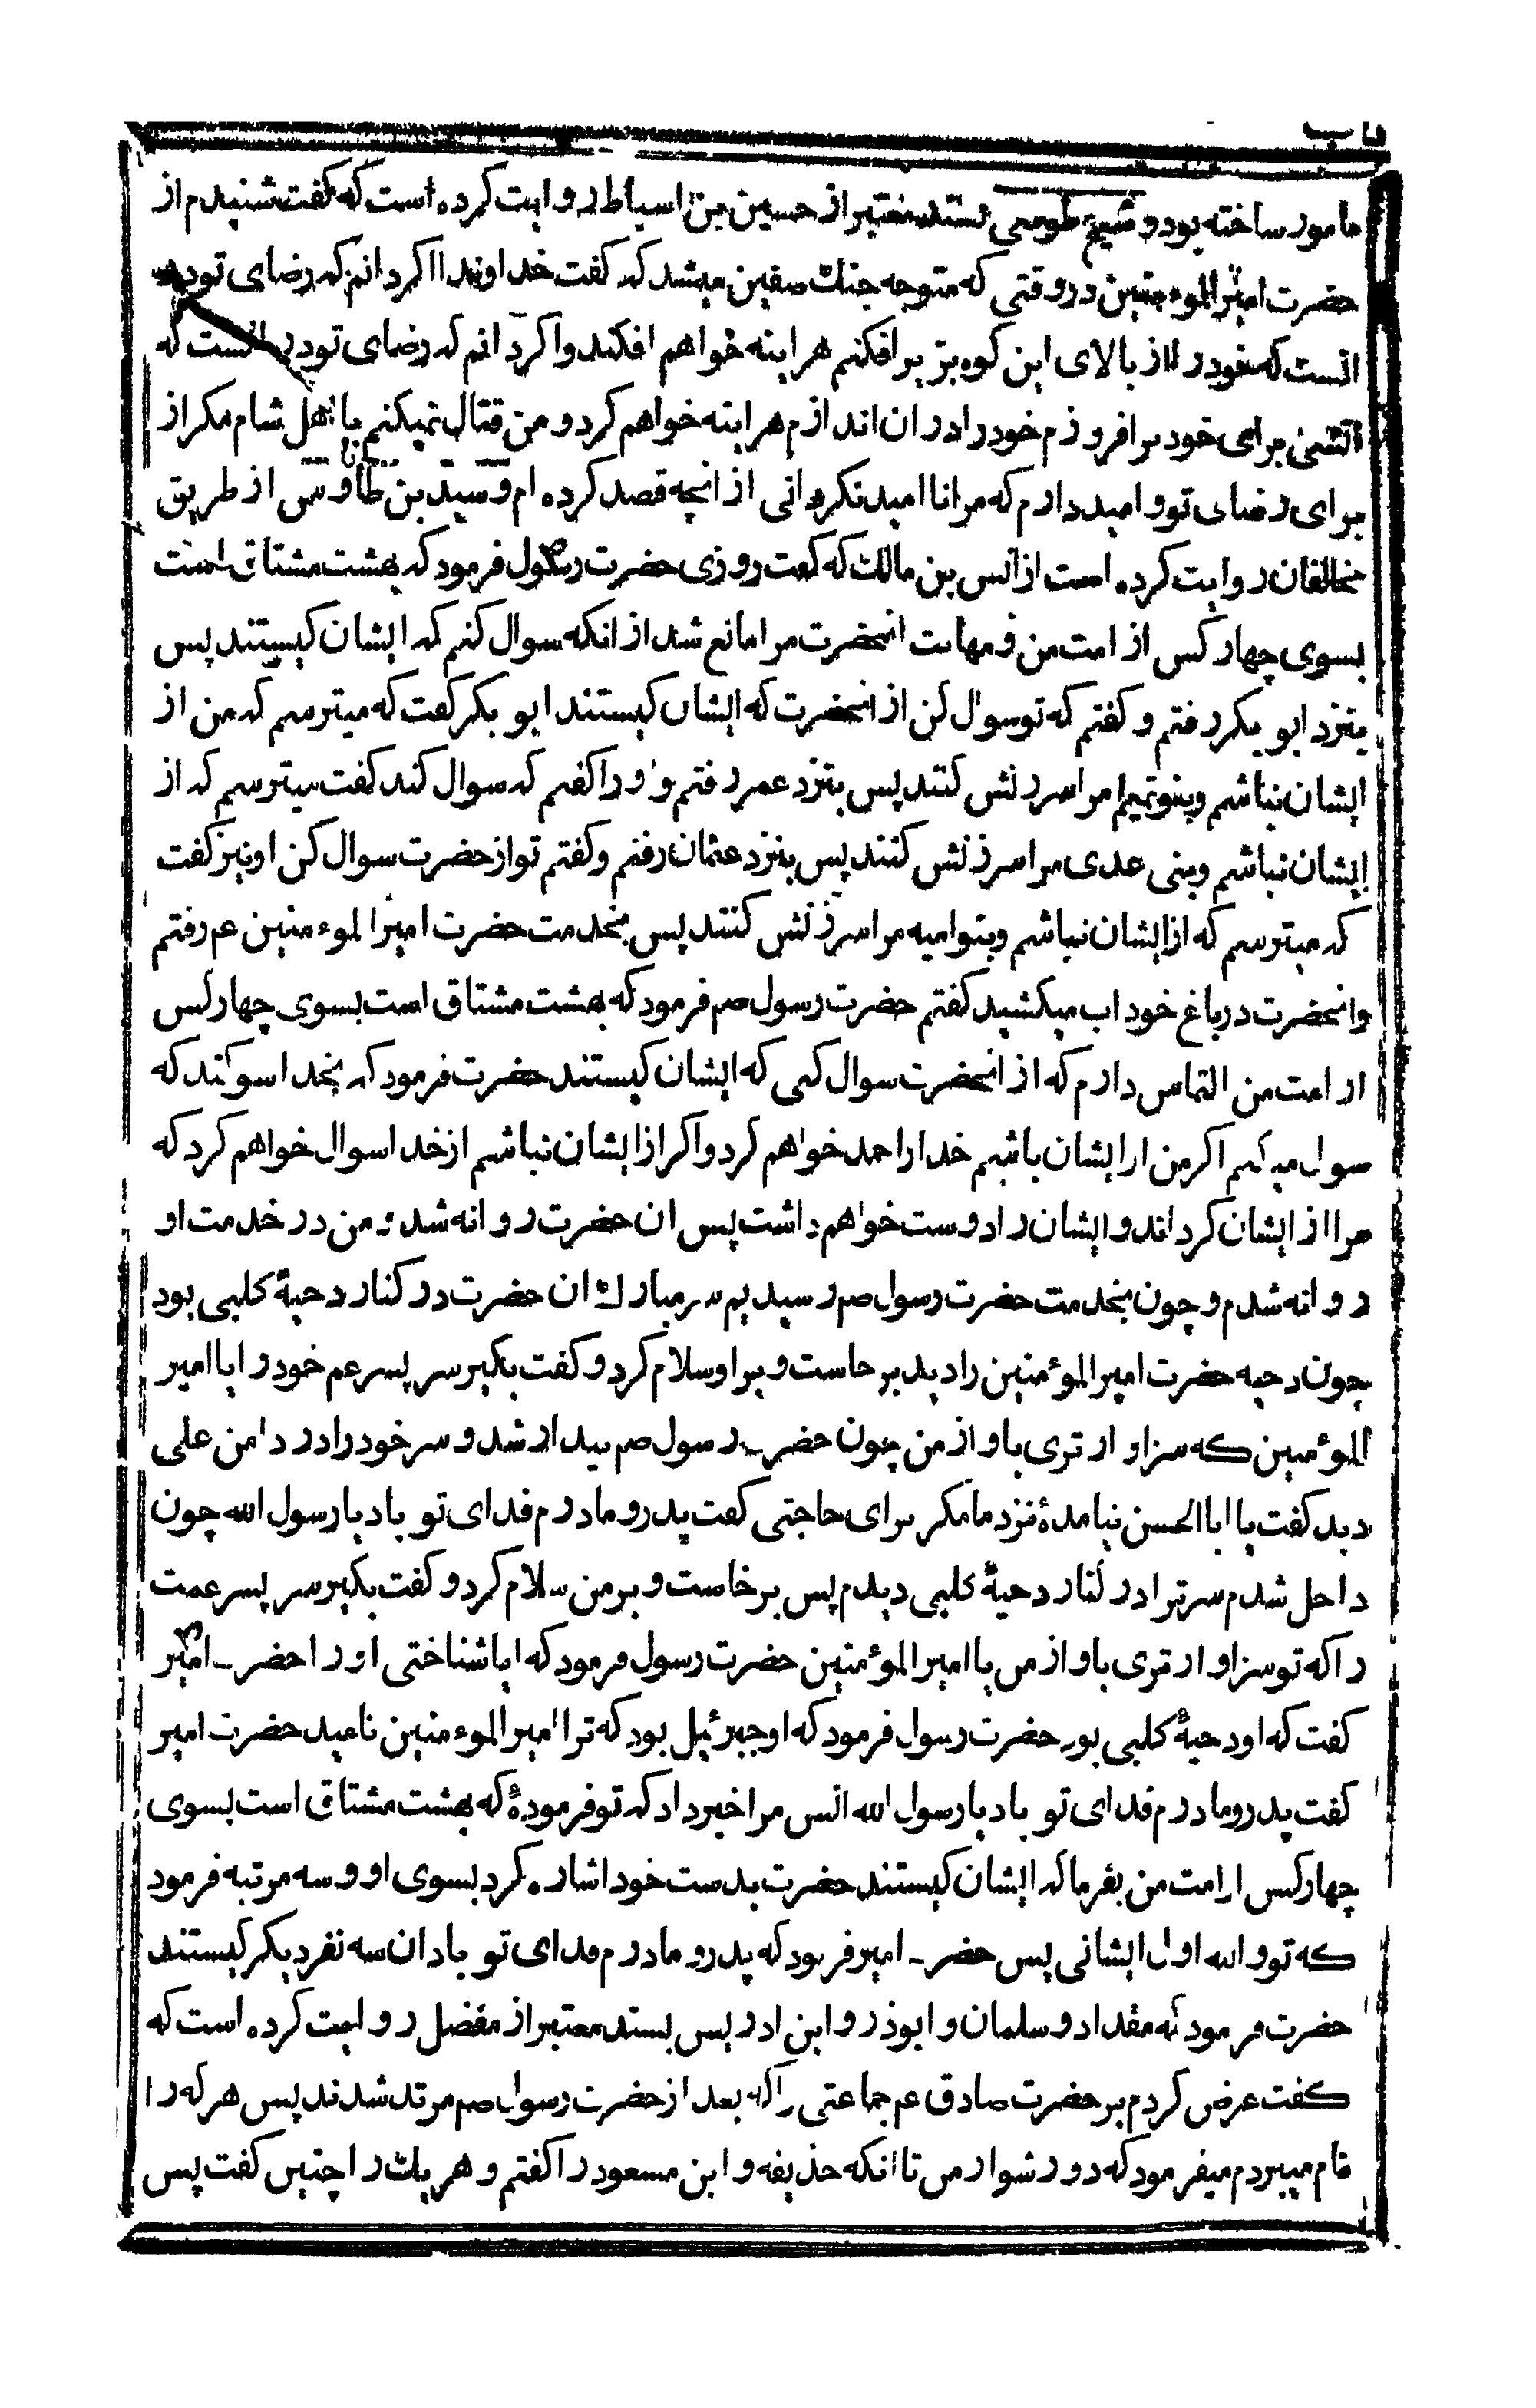 مامور ساخته بود و شیخ طوسی بسند معتبر از حسین بن اسباط روایت کرده است که کفت شنیدم از
حضرت امیر المؤمنین در وقتی که متوجه جنك صفین میشد که کفت خداوندا اکر دانم که رضای تو در
انست که خود را از بالای این کوه بزیر افکنم هراینه خواهم افکند و اکر دانم که رضای تو در انست که
اتشی برای خود برافروزم خود را در ان اندازم هراینه خواهم کرد و من قتال نمیکنم با اهل شام مکر از
برای رضای تو و امید دارم که مرا ناامید نکردانی از انچه قصد کرده ام و سید بن طاوس از طریق
مخالفان روایت کرده است از انس بن مالك که کفت روزی حضرت رسول ص فرمود که بهشت مشتاق است
بسوی چهار کس از امت من و مهابت انحضرت مرا مانع شد از انکه سوال کنم که ایشان کیستند پس
بنزد ابو بکر رفتم و کفتم که تو سوال کن از انحضرت که ایشان کیستند ابو بکر کفت که میترسم که من از
ایشان نباشم و بنوتمیم مرا سرزنش کنند پس بنزد عمر رفتم و او را کفتم که سوال کند کفت میترسم که از
ایشان نباشم و بنی عدی مرا سرزنش کنند پس بنزد عثمان رفتم و کفتم تو از حضرت سوال کن او نیز کفت
که میترسم که از ایشان نباشم و بنوامیه مرا سرزنش کنند پس بخدمت حضرت امیر المؤمنین عم رفتم
و انحضرت در باغ خود اب میکشید کفتم حضرت رسول صم فرمود که بهشت مشتاق است بسوی چهار کس
از امت من التماس دارم که از انحضرت سوال کنی که ایشان کیستند حضرت فرمود که بخدا سوکند که
سوال میکنم اکر من از ایشان باشم خدا را حمد خواهم کرد و اکر از ایشان نباشم از خدا سوال خواهم کرد که
مرا از ایشان کرداند و ایشان را دوست خواهم داشت پس ان حضرت روانه شد و من در خدمت او
روانه شدم و چون بخدمت حضرت رسول صم رسیدیم سر مبارك ان حضرت در کنار دحیهٔ کلبی بود
چون دحیه حضرت امیر المؤمنین را دید برخاست و بر او سلام کرد و کفت بکیر سر پسر عم خود را یا امیر
المؤمنین که سزاوارتری باو از من چون حضرت رسول صم بیدار شد و سر خود را در دامن علی
دید کفت یا ابا الحسن نیامدهٔ نزد ما مکر برای حاجتی کفت پدر و مادرم فدای تو باد یا رسول الله چون
داخل شدم سر ترا در کنار دحیهٔ کلبی دیدم پس برخاست و بر من سلام کرد و کفت بکیر سر پسر عمت
را که تو سزاوارتری باو از من یا امیر المؤمنین حضرت رسول ص فرمود که ایا شناختی او را حضرت امیر
کفت که او دحیهٔ کلبی بود حضرت رسول فرمود که او جبرئیل بود که ترا امیر المؤمنین نامید حضرت امیر
کفت پدر و مادرم فدای تو باد یا رسول الله انس مرا خبر داد که تو فرمودهٔ که بهشت مشتاق است بسوی
چهار کس از امت من بفرما که ایشان کیستند حضرت بدست خود اشاره کرد بسوی او و سه مرتبه فرمود
که تو و الله اول ایشانی پس حضرت امیر فرمود که پدر و مادرم فدای تو باد ان سه نفر دیکر کیستند
حضرت فرمود که مقداد و سلمان و ابوذر و ابن ادریس بسند معتبر از مفضل روایت کرده است که
کفت عرض کردم بر حضرت صادق عم جماعتی را که بعد از حضرت رسول صم مرتد شدند پس هر که را
نام میبردم میفرمود که دور شو از من تا انکه حذیفه و ابن مسعود را کفتم و هر یك را چنین کفت پس